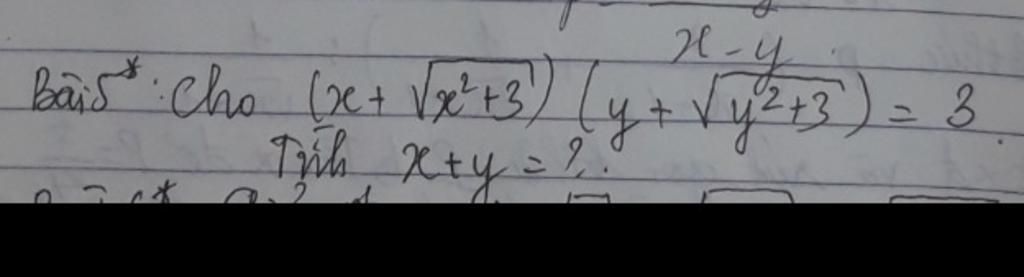 x - y
Bài 5*: Cho (x + √(x²+3)) (y + √(y²+3)) = 3.
Tính x + y = ?.